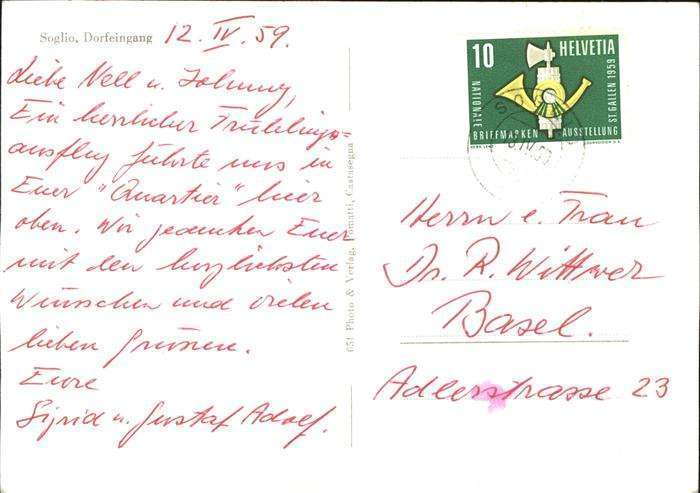 Soglio, Dorfeingang 12. IV. 59.
Liebe Nell u. Johnny,
Ein herrlicher Frühlings=
ausflug führte uns in
Euer "Quartier" hier
oben. Wir gedenken Euer
mit den herzlichsten
Wünschen und vielen
lieben Grüssen.
Eure
Sigrid u. Gustaf Adolf.
651 Photo & Verlag, Pomatti, Castasegna
10 HELVETIA
NATIONALE
BRIEFMARKEN AUSSTELLUNG
ST. GALLEN 1959
Herrn e. Frau
Dr. R. Wittwer
Basel.
Adlerstrasse 23